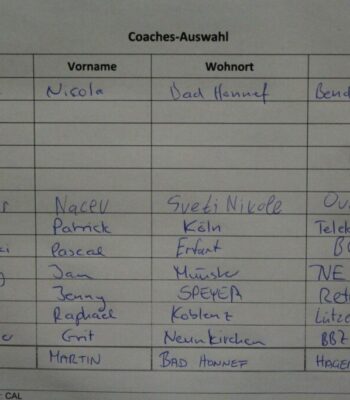 Coaches-Auswahl
Vorname Wohnort
Nicola Bad Honnef Bend
Nacev Sveti Nikole
Patrick Köln Telek
Pascal Erfurt
Jan Münster NE
Jenny SPEYER Ret
Raphael Koblenz Lütze
Grit Neunkirchen BBZ
MARTIN BAD HONNEF HAGER
: CAL